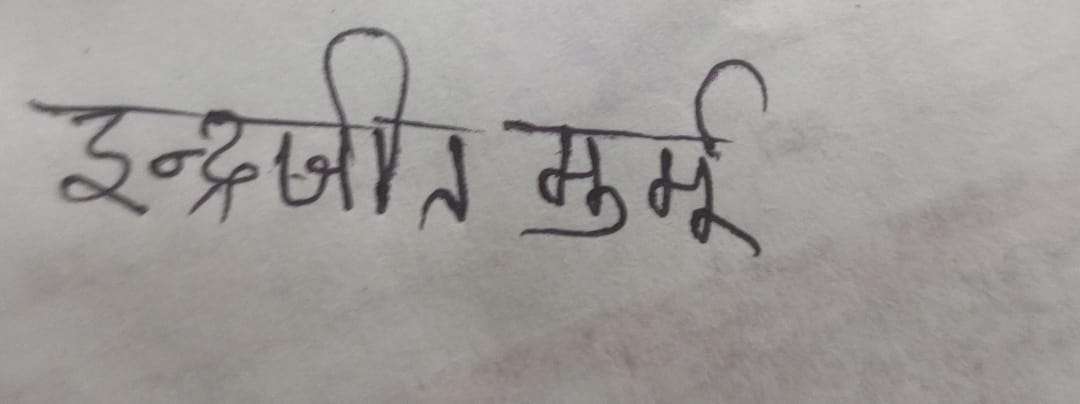 इन्द्रजीत मुर्मू